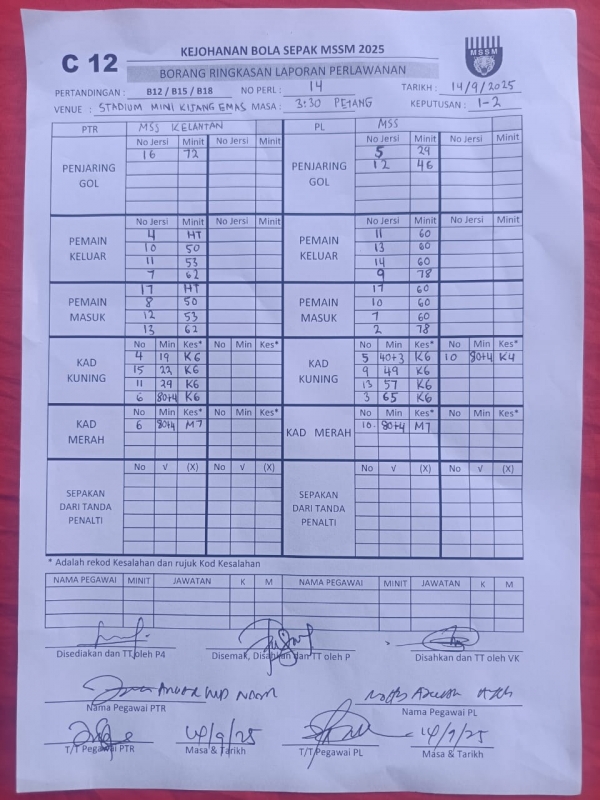 C 12
KEJOHANAN BOLA SEPAK MSSM 2025
MSSM
BORANG RINGKASAN LAPORAN PERLAWANAN
PERTANDINGAN : B12 / B15 / B18 NO PERL : 14 TARIKH : 14/9/2025
VENUE : STADIUM MINI KIJANG EMAS MASA : 3:30 PETANG KEPUTUSAN : 1-2
PTR MSS KELANTAN PL MSS
No Jersi Minit No Jersi Minit No Jersi Minit No Jersi Minit
PENJARING GOL 16 72 PENJARING GOL 5 29
12 46
No Jersi Minit No Jersi Minit No Jersi Minit No Jersi Minit
PEMAIN KELUAR 4 HT PEMAIN KELUAR 11 60
10 50 13 60
11 53 14 60
7 62 9 78
PEMAIN MASUK 17 HT PEMAIN MASUK 17 60
8 50 10 60
12 53 7 60
13 62 2 78
No Min Kes* No Min Kes* No Min Kes* No Min Kes*
KAD KUNING 4 19 K6 KAD KUNING 5 40+3 K6 10 80+4 K4
15 22 K6 9 49 K6
11 29 K6 13 57 K6
6 80+4 K6 3 65 K6
No Min Kes* No Min Kes* No Min Kes* No Min Kes*
KAD MERAH 6 80+4 M7 KAD MERAH 10 80+4 M7
No √ (X) No √ (X) No √ (X) No √ (X)
SEPAKAN DARI TANDA PENALTI SEPAKAN DARI TANDA PENALTI
* Adalah rekod Kesalahan dan rujuk Kod Kesalahan
NAMA PEGAWAI MINIT JAWATAN K M NAMA PEGAWAI MINIT JAWATAN K M
Disediakan dan TT oleh P4 Disemak, Disahkan dan TT oleh P Disahkan dan TT oleh VK
Nama Pegawai PTR Nama Pegawai PL
14/9/25 14/9/25
T/T Pegawai PTR Masa & Tarikh T/T Pegawai PL Masa & Tarikh